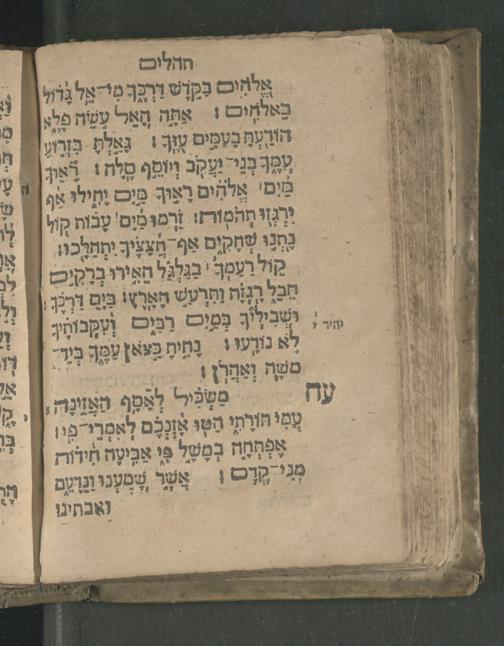 תהלים
אֱלֹהִים בַּקֹּדֶשׁ דַּרְכֶּךָ מִי־אֵל גָּדוֹל
כֵּאלֹהִים׃ אַתָּה הָאֵל עֹשֵׂה פֶלֶא
הוֹדַעְתָּ בָעַמִּים עֻזֶּךָ׃ גָּאַלְתָּ בִּזְרוֹעַ
עַמֶּךָ בְּנֵי־יַעֲקֹב וְיוֹסֵף סֶלָה׃ רָאוּךָ
מַּיִם אֱלֹהִים רָאוּךָ מַּיִם יָחִילוּ אַף
יִרְגְּזוּ תְהֹמוֹת׃ זֹרְמוּ מַיִם עָבוֹת קוֹל
נָתְנוּ שְׁחָקִים אַף־חֲצָצֶיךָ יִתְהַלָּכוּ׃
קוֹל רַעַמְךָ בַּגַּלְגַּל הֵאִירוּ בְרָקִים
תֵּבֵל רָגְזָה וַתִּרְעַשׁ הָאָרֶץ׃ בַּיָּם דַּרְכֶּךָ
וּשְׁבִילֶיךָ בְּמַיִם רַבִּים וְעִקְּבוֹתֶיךָ
יתיר י
לֹא נוֹדָעוּ׃ נָחִיתָ כַצֹּאן עַמֶּךָ בְּיַד־
מֹשֶׁה וְאַהֲרֹן׃
עח
מַשְׂכִּיל לְאָסָף הַאֲזִינָה
עַמִּי תּוֹרָתִי הַטּוּ אָזְנְכֶם לְאִמְרֵי־פִי׃
אֶפְתְּחָה בְמָשָׁל פִּי אַבִּיעָה חִידוֹת
מִנִּי־קֶדֶם׃ אֲשֶׁר שָׁמַעְנוּ וַנֵּדָעֵם
ואבתינו